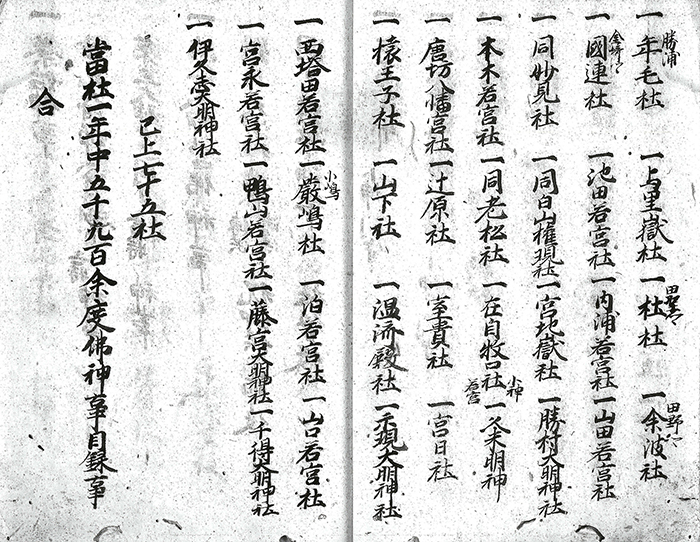 一年毛社 一与里嶽社 一杜社 一余波社
勝浦 田野
一國連社 一池田若宮社 一内浦若宮社 一山田若宮社
一同妙見社 一同白山權現社 一宮地嶽社 一勝村大明神社
一本木若宮社 一同老松社 一在自牧口社 一久末明神
小神 若宮
一唐坊八幡宮社 一辻原社 一室貴社 一宮日社
一猿王子社 一山下社 一温済殿社 一示現大明神社
一西塔田若宮社 一嚴嶋社 一泊若宮社 一山口若宮社
小嶋
一宮永若宮社 一鴨山若宮社 一藤宮大明神社 一千得大明神社
一伊久志大明神社
已上七十五社
當社一年中五千九百余度佛神事目録事
合